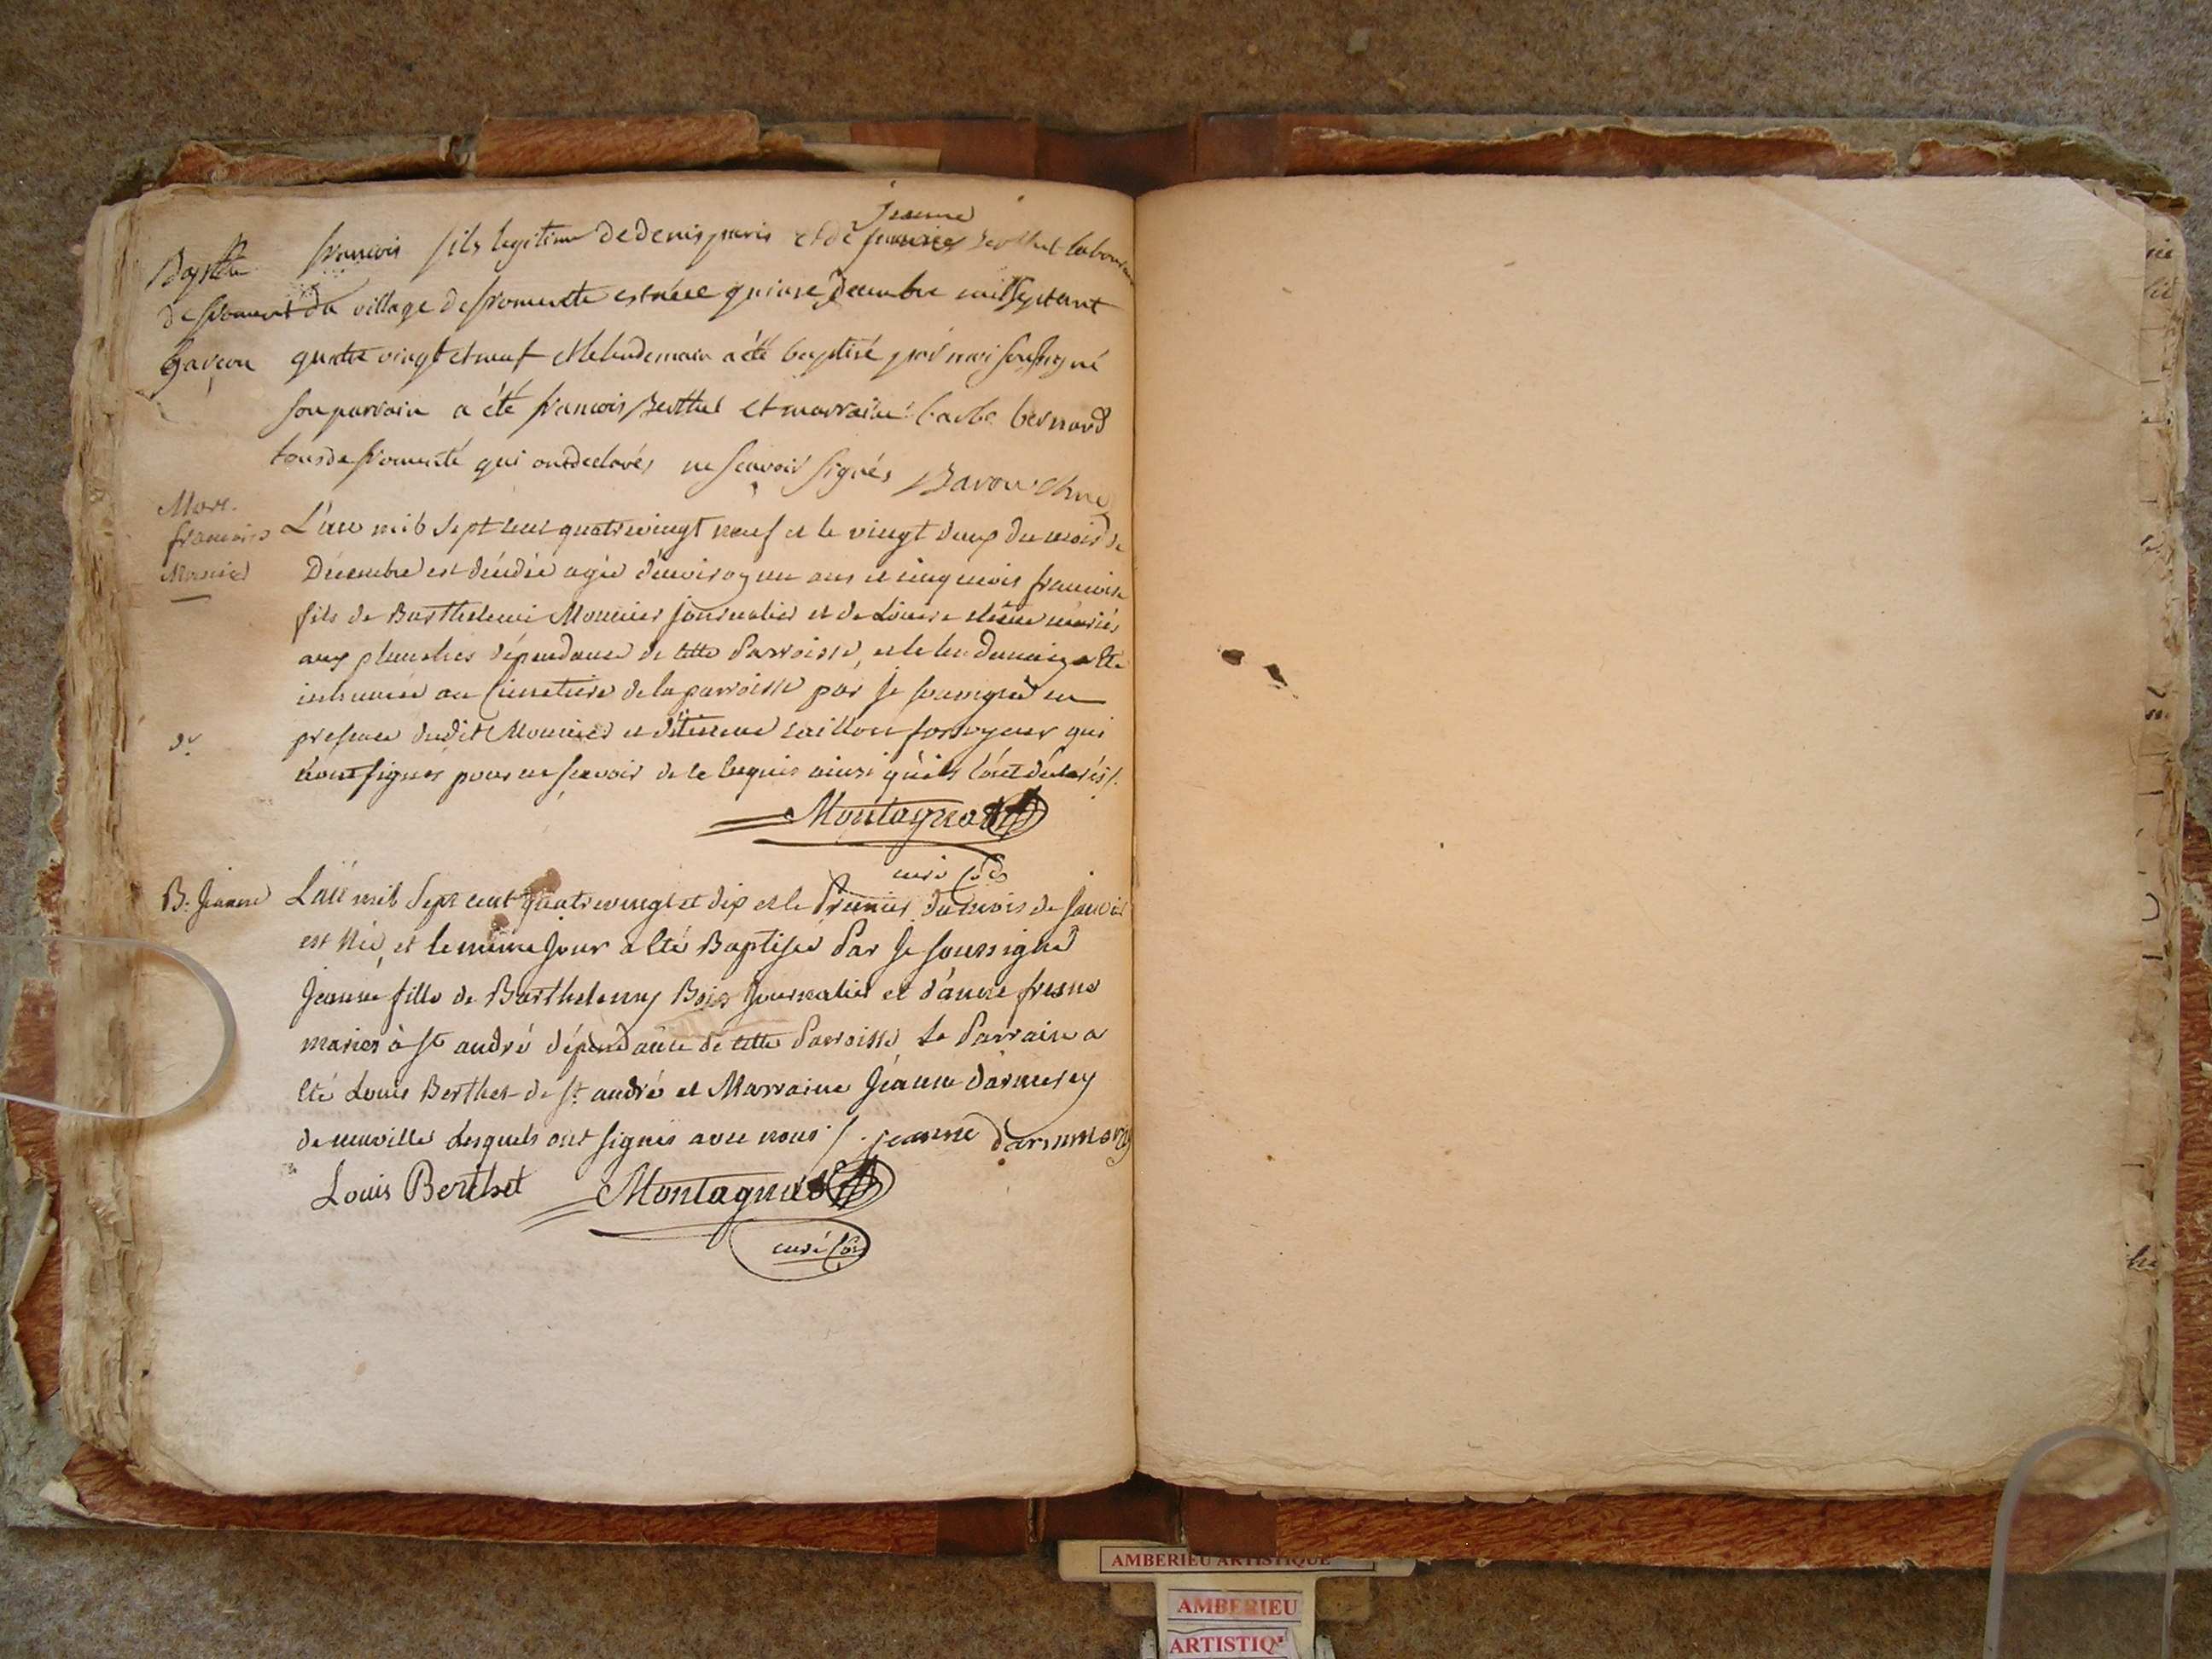 Jeanne
Baptême françois fils legitime de denis paris et de Berthet laboureur
du village de fromente est née quinze Decembre mil sept cent
garçon quatre vingt et neuf et le lendemain a été baptisé par moi soussigné
son parrain a été francois Berthet et marraine barbe bernard
tous de fromenté qui ont declarés ne scavoir signés
Mort.
françois L'an mil sept cent quatre vingt neuf et le vingt deux du mois de
Monier Décembre est décédée agée d'environ un ans et cinq mois francoise
fils de Barthelemi Mounier journalier et de Louise mariés
aux planches dépendance de cette Parroisse, et le lendemain a été
inhumée au Cimetiere de la parroisse par je soussigné en
presence dudit Mounier et d'étienne caillon fossoyeur qui
n'ont signés pour ne scavoir de ce requis ainsi qu'ils l'ont déclarés /.
Montagnat
curé
B. Jeanne L'an mil sept cent quatre vingt et dix et le Premier du mois de Janvier
est Née, et le même jour a été Baptisée Par Je soussigné
Jeanne fille de Barthelemy Bois Journalier et d'anne fresne
mariés à St andré dépendance de cette Parroisse Le Parrain a
été Louis Berthet de St andré et Marraine Jeanne d'armesey
de neuville Lesquels ont signés avec nous /. jeanne
Louis Berthet Montagnat
curé
AMBERIEU ARTISTIQUE
AMBERIEU
ARTISTIQ